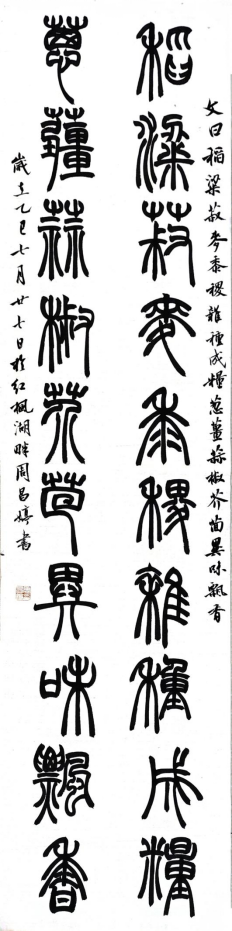 文曰稻粱菽麥黍稷雜種成糧蔥薑蒜椒芥茴異味飄香
稻粱菽麥黍稷雜種成糧
蔥薑蒜椒芥茴異味飄香
歲在乙巳七月廿七日於紅楓湖畔周昌婷書